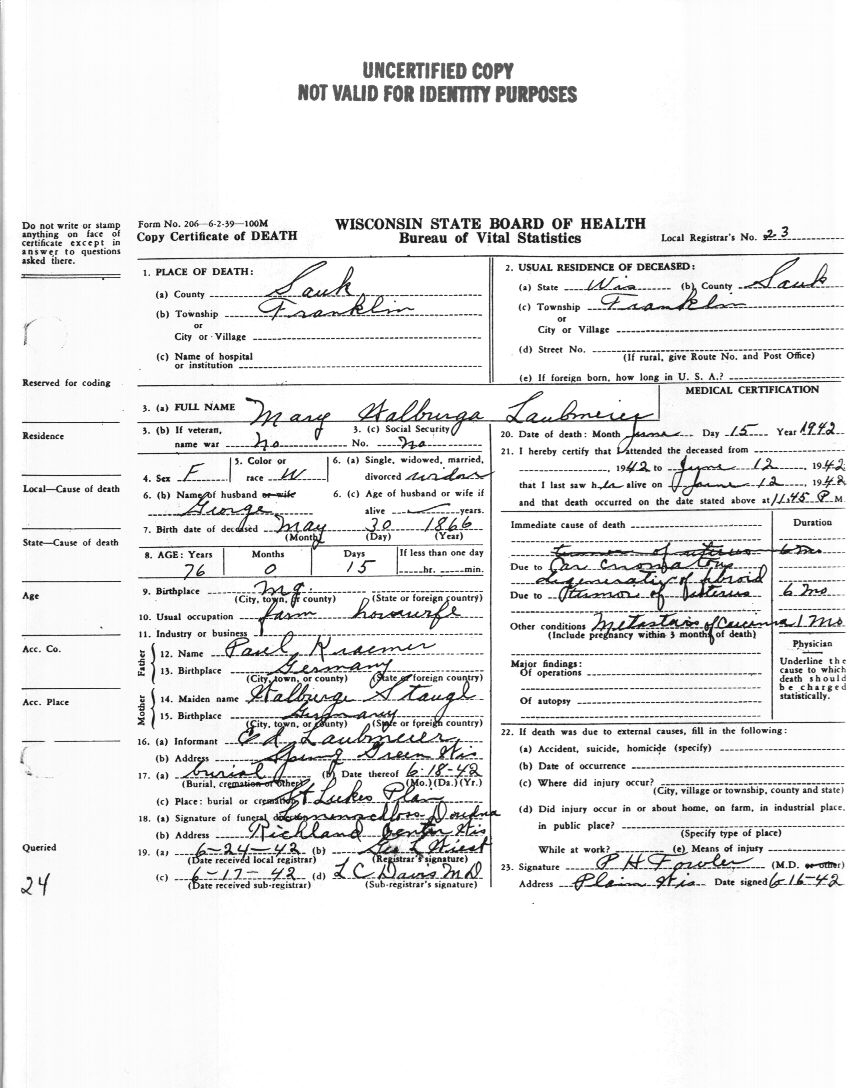 UNCERTIFIED COPY
NOT VALID FOR IDENTITY PURPOSES
Do not write or stamp
anything on face of
certificate except in
answer to questions
asked there.
Form No. 206—6-2-39—100M
Copy Certificate of DEATH
WISCONSIN STATE BOARD OF HEALTH
Bureau of Vital Statistics
Local Registrar's No. 23
1. PLACE OF DEATH:
(a) County Sauk
(b) Township Franklin
or
City or Village
(c) Name of hospital
or institution
2. USUAL RESIDENCE OF DECEASED:
(a) State Wis (b) County Sauk
(c) Township Franklin
or
City or Village
(d) Street No.
(If rural, give Route No. and Post Office)
(e) If foreign born, how long in U. S. A.?
Reserved for coding
Residence
Local—Cause of death
State—Cause of death
Age
Acc. Co.
Acc. Place
Queried
24
3. (a) FULL NAME Mary Walburga Laubmeier
3. (b) If veteran,
name war no
3. (c) Social Security
No. no
4. Sex F
5. Color or
race W
6. (a) Single, widowed, married,
divorced widow
6. (b) Name of husband or wife
George
6. (c) Age of husband or wife if
alive years.
7. Birth date of deceased May 30 1866
(Month) (Day) (Year)
8. AGE: Years Months Days If less than one day
76 0 15 hr. min.
9. Birthplace
(City, town, or county) (State or foreign country)
10. Usual occupation farm housewife
11. Industry or business
Father
12. Name Paul Kraemer
13. Birthplace Germany
(City, town, or county) (State or foreign country)
Mother
14. Maiden name Walburge Staugl
15. Birthplace Germany
(City, town, or county) (State or foreign country)
16. (a) Informant Ed Laubmeier
(b) Address Spring Green Wis
17. (a) burial (b) Date thereof 6-18-42
(Burial, cremation or other) (Mo.) (Da.) (Yr.)
(c) Place: burial or cremation St Lukes Plain
18. (a) Signature of funeral director
(b) Address Richland Center Wis
19. (a) 6-24-42 (b) Geo L Wiest
(Date received local registrar) (Registrar's signature)
(c) 6-17-42 (d) L C Davis M D
(Date received sub-registrar) (Sub-registrar's signature)
MEDICAL CERTIFICATION
20. Date of death: Month June Day 15 Year 1942
21. I hereby certify that I attended the deceased from
, 1942 to June 12, 1942
that I last saw her alive on June 12, 1942
and that death occurred on the date stated above at 11:45 P M.
Immediate cause of death Duration
tumor of uterus 6 mo
Due to Carcinomatous
degeneratig of fibroid
Due to tumor of Uterus 6 mo
Other conditions Metastasis of 1 Mo
(Include pregnancy within 3 months of death)
Major findings:
Of operations
Of autopsy
Physician
Underline the
cause to which
death should
be charged
statistically.
22. If death was due to external causes, fill in the following:
(a) Accident, suicide, homicide (specify)
(b) Date of occurrence
(c) Where did injury occur?
(City, village or township, county and state)
(d) Did injury occur in or about home, on farm, in industrial place,
in public place?
(Specify type of place)
While at work? (e) Means of injury
23. Signature P H Fowler (M.D. or other)
Address Plain Wis Date signed 6-16-42